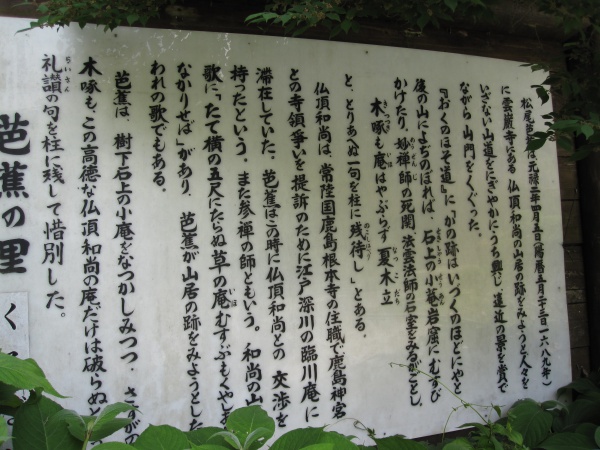 松尾芭蕉は、元禄二年四月五日(陽暦五月二十三日一六八九年)
に雲巌寺にある 仏頂和尚の山居の跡をみようと人々を
いざない山道をにぎやかにうち興じ、道辺の景を賞で
ながら 山門をくぐった。
『おくのほそ道』に かの跡はいづくのほどにやと
後の山によぢのぼれば、石上の小菴岩窟にむすび
かけたり、妙禅師の死関、法雲法師の石室をみるがごとし、
木啄も庵はやぶらず 夏木立
と、とりあへぬ一句を柱に残侍し」とある。
仏頂和尚は、常陸国鹿島根本寺の住職で鹿島神宮
との寺領争いを提訴のために江戸深川の臨川庵に
滞在していた。芭蕉はこの時に仏頂和尚との 交渉を
持ったという。また参禅の師ともいう。和尚の山
歌に「たて横の五尺にたらぬ草の庵 むすぶもくやし
なかりせば」があり、芭蕉が山居の跡をみようとした
われの歌でもある。
芭蕉は、樹下石上の小庵をなつかしみつつ、さすがの
木啄も、この高徳な仏頂和尚の庵だけは破らぬと
礼讃の句を柱に残して惜別した。
芭蕉の里 く